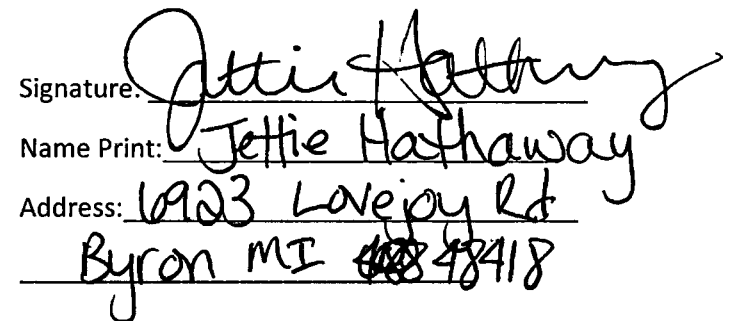 Signature: Jettie Hathaway
Name Print: Jettie Hathaway
Address: 6923 Lovejoy Rd
Byron MI 48418